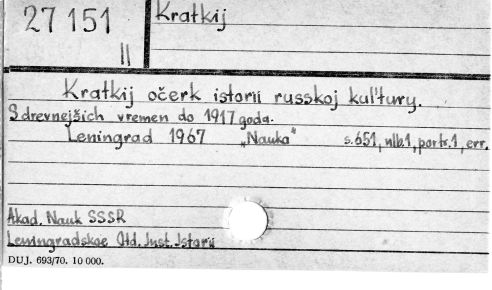 27 151
II
Kratkij
Kratkij očerk istorii russkoj kul'tury.
S drevnejšich vremen do 1917 goda.
Leningrad 1967 „Nauka" s.651, nlb.1, portr.1, err.
Akad. Nauk SSSR
Leningradskoe Otd. Inst. Istorii
DUJ. 693/70. 10 000.